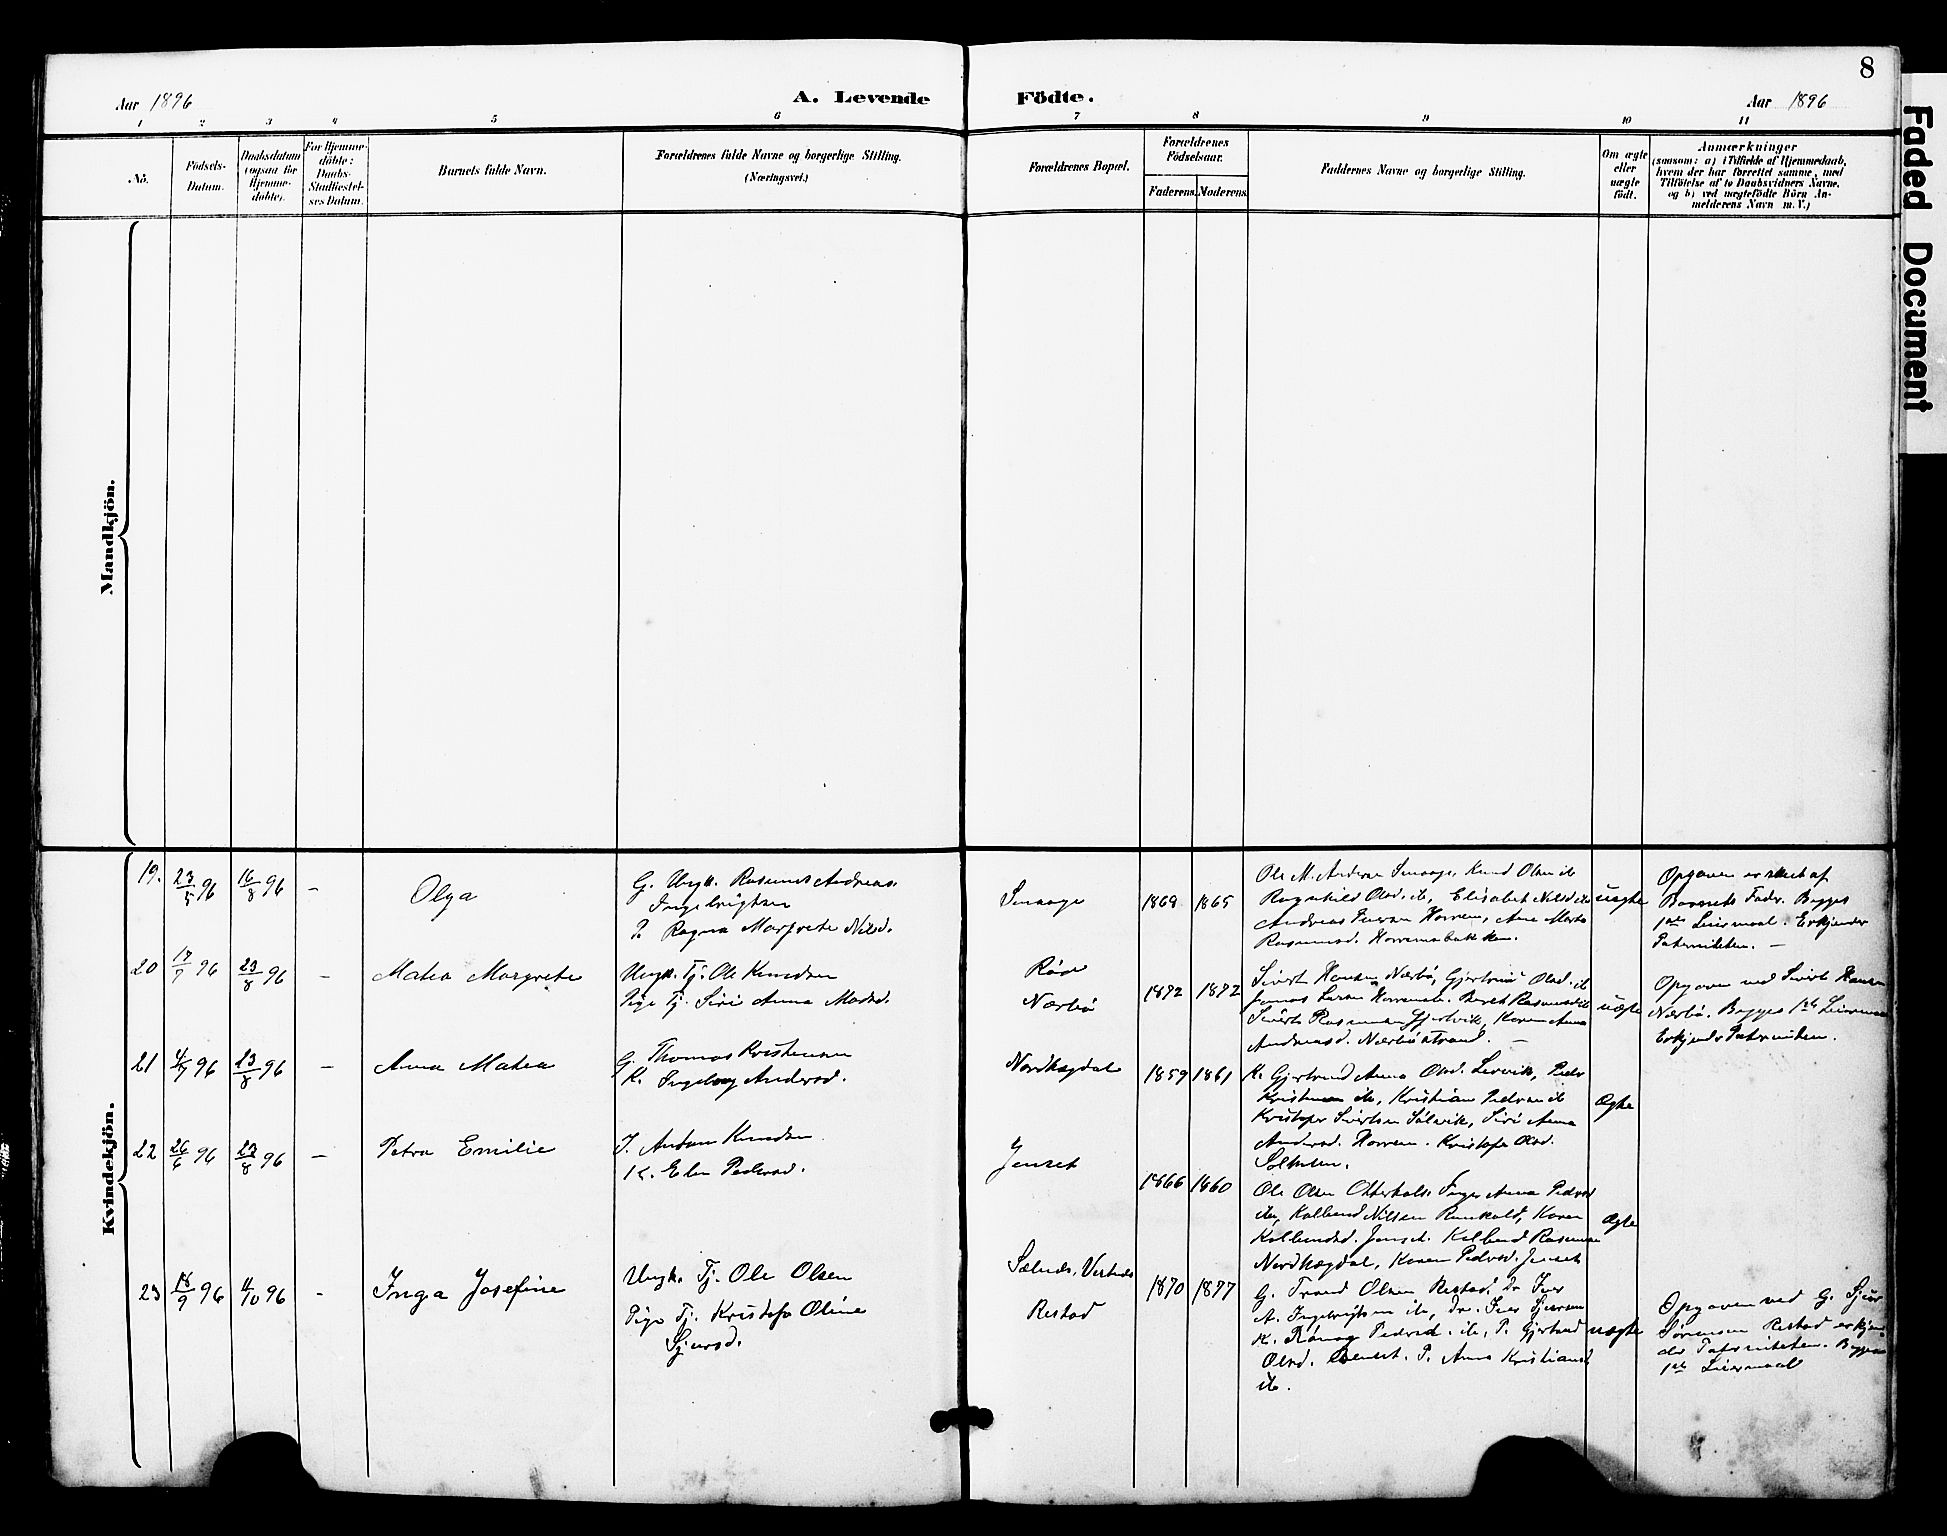 8
Aar 1896
A. Levende Födte.
Aar 1896
1 2 3 4 5 6 7 8 9 10 11
No.
Födsels-
Datum.
Daabsdatum
(ogsaa for
Hjemme-
döbte).
For Hjemme-
döbte:
Daabs-
Stadfæstel-
ses Datum.
Barnets fulde Navn.
Forældrenes fulde Navne og borgerlige Stilling.
(Næringsvei.)
Forældrenes Bopæl.
Forældrenes
Födselsaar.
Faderens. Moderens.
Faddernes Navne og borgerlige Stilling.
Om ægte
eller
uægte
födt.
Anmærkninger
(saasom: a) i Tilfælde af Hjemmedaab,
hvem der har forrettet samme, med
Tilföielse af to Daabsvidners Navne,
og b) ved uægtefödte Börn An-
melderens Navn m. V.)
Mandkjön.
Kvindekjön.
19. 23/5 96 16/8 96 –
Olga
G. Ungk. Rasmus Andreas
Ingebrigtsen
P. Ragna Margrete Nilsd.
1868 1865
Ole M. Andersen Knud Olsen ib
Ragnhild Olsd. ib, Elisabet Nilsd ib
Andreas Iversen Horrem, Ane Marta
Rasmusd. Horremsbakken.
uægte
Opgaven er af
Barnets Fader. Begges
1ste Leiermaal. Erkjender
Paterniteten. –
20 17/7 96 23/8 96 –
Matea Margrete
Ungk. Tj. Ole Knudsen
Pige Tj. Siri Anna Madsd.
Röd
Nærbö
1872 1872
Sivert Hansen Nærbö, Gjertrud Olsd. ib
Jonas Larsen Horrem Beret Rasmusd ib
Sivert Rasmussen Karen Anna
Andreasd. Nærböstrand. –
uægte
Opgaven ved Sivert Hansen
Nærbö. Begges 1ste Leiermaal
Erkjender Paterniteten.
21 4/7 96 23/8 96 –
Anna Matea
G. Thomas Kristensen
K. Ingeborg Andersd.
Nordhagdal
1859 1861
K. Gjertrud Anna Olsd. Leirvik, Peder
Kristensen ib, Kristian Pedersen ib
Kristofer Sivertsen Sölsvik, Siri Anna
Andersd. Horrem. Kristofer Olsd.
Ægte
22 26/6 96 23/8 96 –
Petra Emilie
I. Anton Knudsen
K. Elen Pedersd.
Jenset
1866 1860
Ole Olsen Otterhals. Inger Anna Pedersd
ib, Kolbend Nilsen Karen
Kolbendsd. Jenset. Kolbend Rasmussen
Nordhagdal, Karen Pedersd. Jenset
Ægte
23 18/9 96 11/10 96 -
Inga Josefine
Ungk. Tj. Ole Olsen
Pige Tj. Kristofa Oline
Sjursd.
Restad
1870 1877
G. Trond Olsen Restad. Dr Iver
A. Ingebrigtsen ib, Dr. Iver Sjursen
K. Rönnog Pedersd. ib, P. Gjertrud
Olsd. Jenset. P. Anna Kristiansd
ib.
uægte
Opgaven ved G. Sjur
Sörensen Restad erkjen-
der Paterniteten. Begges
1ste Leiermaal
Faded Document